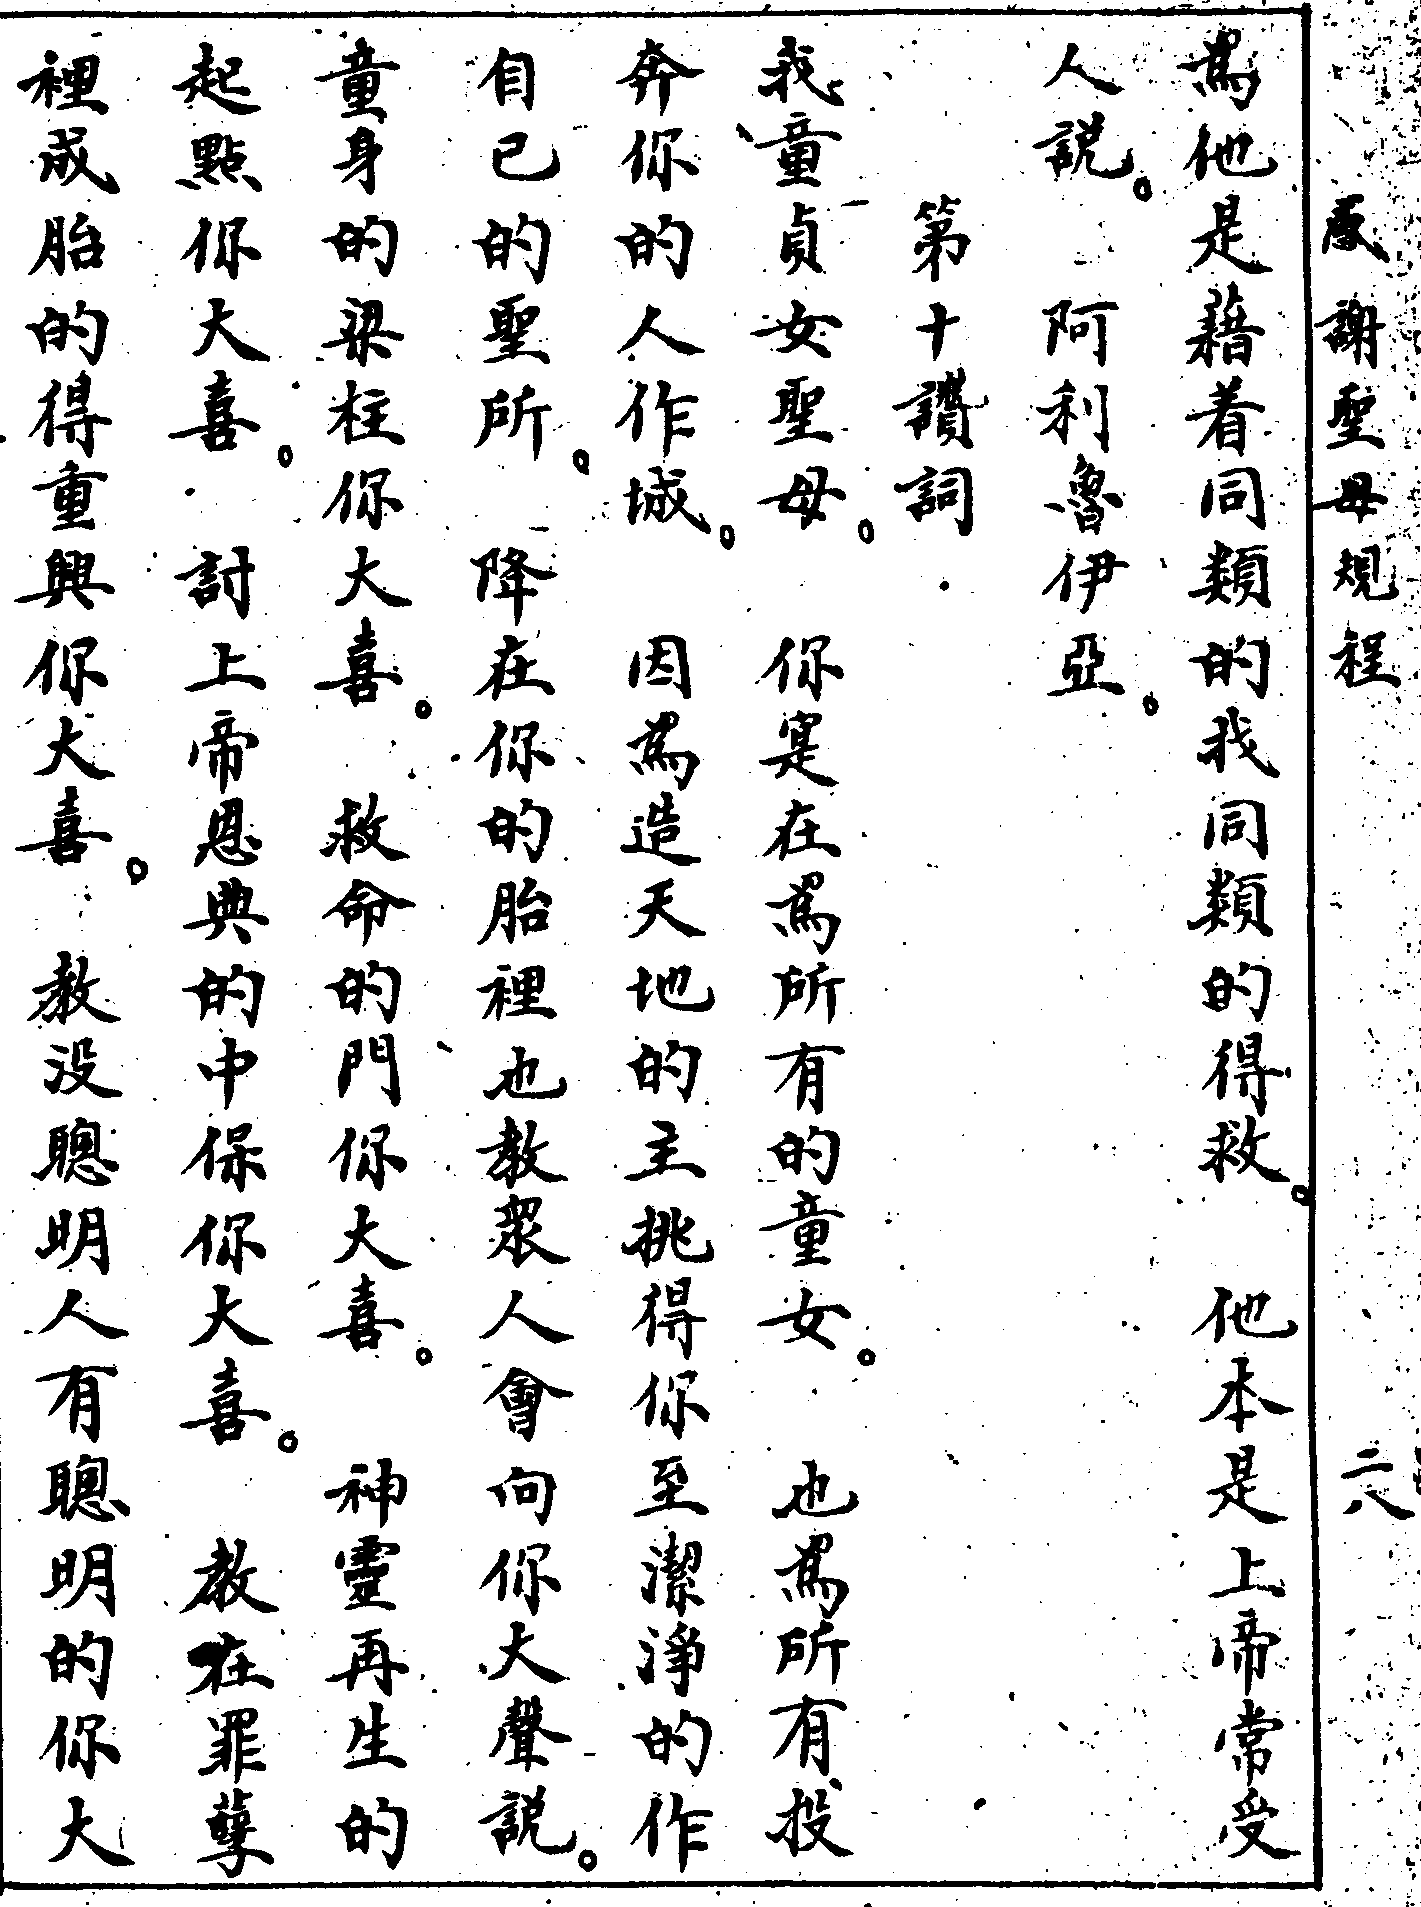 感謝聖母規程 二八
爲他是藉着同類的我同類的得救。 他本是上帝常受
人説。 阿利魯伊亞。
第十讚詞
我童貞女聖母。 你寔在爲所有的童女。 也爲所有投
奔你的人作城。 因爲造天地的主挑得你至潔淨的作
自己的聖所。 降在你的胎裡也教衆人會向你大聲説。
童身的梁柱你大喜。 救命的門你大喜。 神靈再生的
起點你大喜。 討上帝恩典的中保你大喜。 教在罪孽
裡成胎的得重興你大喜。 教没聰明人有聰明的你大